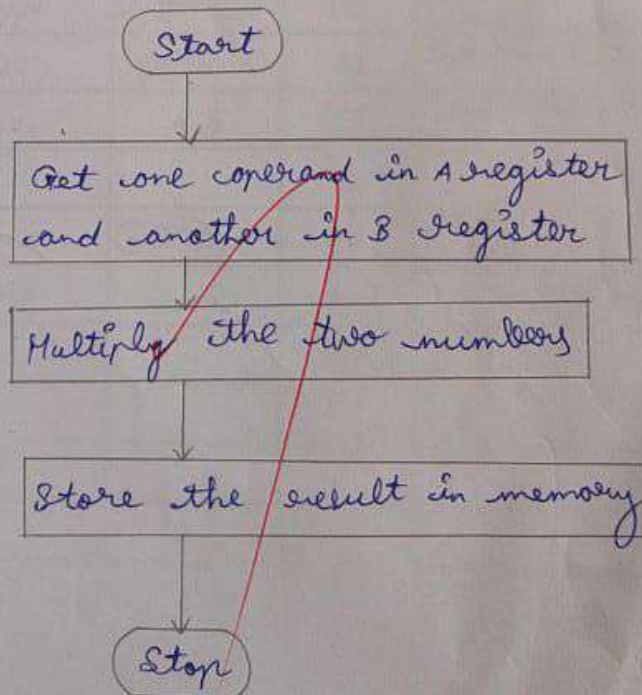 Start
Get one operand in A register
and another in B register
Multiply the two numbers
Store the result in memory
Stop